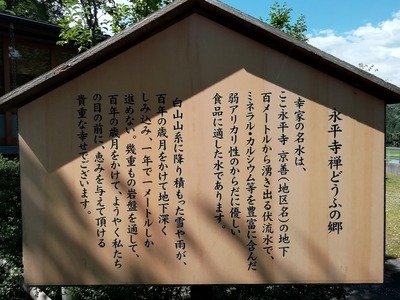 永平寺禅どうふの郷
幸家の名水は、
ここ永平寺 京善(地区名)の地下
百メートルから湧き出る伏流水で、
ミネラル・カルシウム等を豊富に含んだ
弱アルカリ性のからだに優しい、
食品に適した水であります。
白山山系に降り積もった雪や雨が、
百年の歳月をかけて地下深く
しみ込み、一年で一メートルしか
進めない。幾重もの岩盤を通して、
百年の歳月をかけて、ようやく私たち
の目の前に、恵みを与えて頂ける
貴重な幸せでございます。